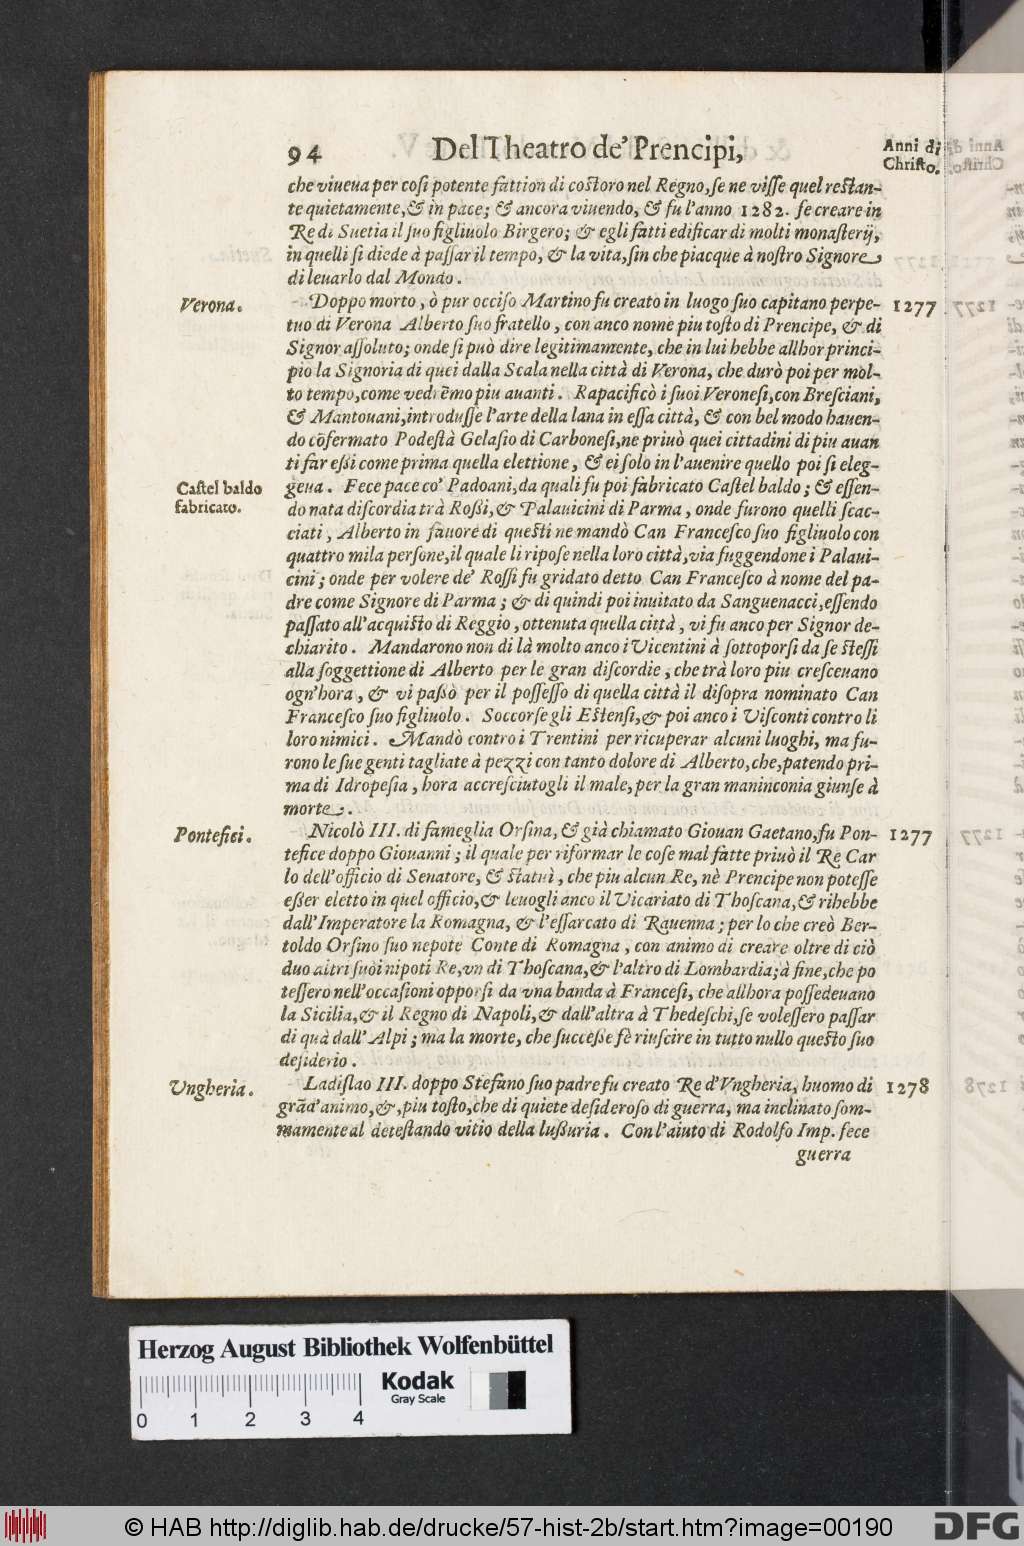 94 Del Theatro de' Prencipi, Anni di
Christo.
che viueua per cosi potente fattion di costoro nel Regno, se ne visse quel restan-
te quietamente, & in pace; & ancora viuendo, & fu l'anno 1282. fe creare in
Re di Suetia il suo figliuolo Birgero; & egli fatti edificar di molti monasterij,
in quelli si diede à passar il tempo, & la vita, sin che piacque à nostro Signore
di leuarlo dal Mondo.
Verona. Doppo morto, ò pur occiso Martino fu creato in luogo suo capitano perpe- 1277
tuo di Verona Alberto suo fratello, con anco nome piu tosto di Prencipe, & di
Signor assoluto; onde si può dire legitimamente, che in lui hebbe allhor princi-
pio la Signoria di quei dalla Scala nella città di Verona, che durò poi per mol-
to tempo, come vedrẽmo piu auanti. Rapacificò i suoi Veronesi, con Bresciani,
& Mantouani, introdusse l'arte della lana in essa città, & con bel modo hauen-
do cõfermato Podestà Gelasio di Carbonesi, ne priuò quei cittadini di piu auan
ti far essi come prima quella elettione, & ei solo in l'auenire quello poi si eleg-
Castel baldo
fabricato.
geua. Fece pace co' Padoani, da quali fu poi fabricato Castel baldo; & essen-
do nata discordia trà Rossi, & Palauicini di Parma, onde furono quelli scac-
ciati, Alberto in fauore di questi ne mandò Can Francesco suo figliuolo con
quattro mila persone, il quale li ripose nella loro città, via fuggendone i Palaui-
cini; onde per volere de' Rossi fu gridato detto Can Francesco à nome del pa-
dre come Signore di Parma; & di quindi poi inuitato da Sanguenacci, essendo
passato all'acquisto di Reggio, ottenuta quella città, vi fu anco per Signor de-
chiarito. Mandarono non di là molto anco i Vicentini à sottoporsi da se stessi
alla soggettione di Alberto per le gran discordie, che trà loro piu cresceuano
ogn'hora, & vi passò per il possesso di quella città il disopra nominato Can
Francesco suo figliuolo. Soccorse gli Estensi, & poi anco i Visconti contro li
loro nimici. Mandò contro i Trentini per ricuperar alcuni luoghi, ma fu-
rono le sue genti tagliate à pezzi con tanto dolore di Alberto, che, patendo pri-
ma di Idropesia, hora accresciutogli il male, per la gran maninconia giunse à
morte.
Pontefici. Nicolò III. di fameglia Orsina, & già chiamato Giouan Gaetano, fu Pon- 1277
tefice doppo Giouanni; il quale per riformar le cose mal fatte priuò il Re Car
lo dell'officio di Senatore, & statuì, che piu alcun Re, nè Prencipe non potesse
esser eletto in quel officio, & leuogli anco il Vicariato di Thoscana, & rihebbe
dall'Imperatore la Romagna, & l'essarcato di Rauenna; per lo che creò Ber-
toldo Orsino suo nepote Conte di Romagna, con animo di creare oltre di ciò
duo altri suoi nipoti Re, vn di Thoscana, & l'altro di Lombardia; à fine, che po
tessero nell'occasioni opporsi da vna banda à Francesi, che allhora possedeuano
la Sicilia, & il Regno di Napoli, & dall'altra à Thedeschi, se volessero passar
di quà dall'Alpi; ma la morte, che successe fè riuscire in tutto nullo questo suo
desiderio.
Vngheria. Ladislao III. doppo Stefano suo padre fu creato Re d'Vngheria, huomo di 1278
grãd'animo, &, piu tosto, che di quiete desideroso di guerra, ma inclinato som-
mamente al detestando vitio della lussuria. Con l'aiuto di Rodolfo Imp. fece
guerra
Herzog August Bibliothek Wolfenbüttel
0 1 2 3 4
Kodak
Gray Scale
© HAB http://diglib.hab.de/drucke/57-hist-2b/start.htm?image=00190
DFG